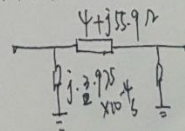 4+j55.9Ω
j.3.975
×10⁻⁴s